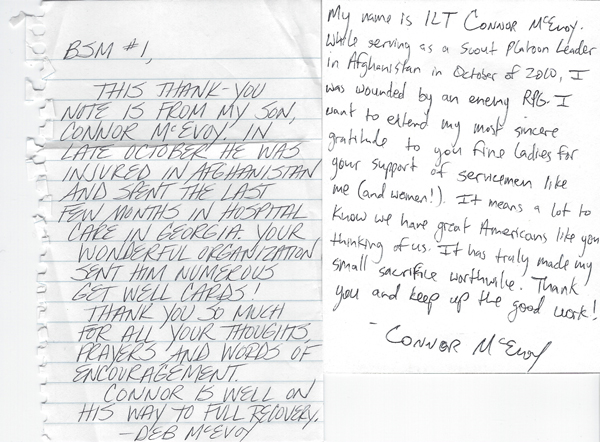 BSM #1,
THIS THANK-YOU
NOTE IS FROM MY SON,
CONNOR McEVOY. IN
LATE OCTOBER HE WAS
INJURED IN AFGHANISTAN
AND SPENT THE LAST
FEW MONTHS IN HOSPITAL
CARE IN GEORGIA YOUR
WONDERFUL ORGANIZATION
SENT HIM NUMEROUS
GET WELL CARDS!
THANK YOU SO MUCH
FOR ALL YOUR THOUGHTS,
PRAYERS AND WORDS OF
ENCOURAGEMENT.
CONNOR IS WELL ON
HIS WAY TO FULL RECOVERY.
-DEB McEVOY
My name is 1LT Connor McEvoy.
While serving as a Scout Platoon Leader
in Afghanistan in October of 2010, I
was wounded by an enemy RPG. I
want to extend my most sincere
gratitude to you fine ladies for
your support of servicemen like
me (and women!). It means a lot to
know we have great Americans like you
thinking of us. It has truly made my
small sacrifice worthwhile. Thank
you and keep up the good work!
- Connor McEvoy